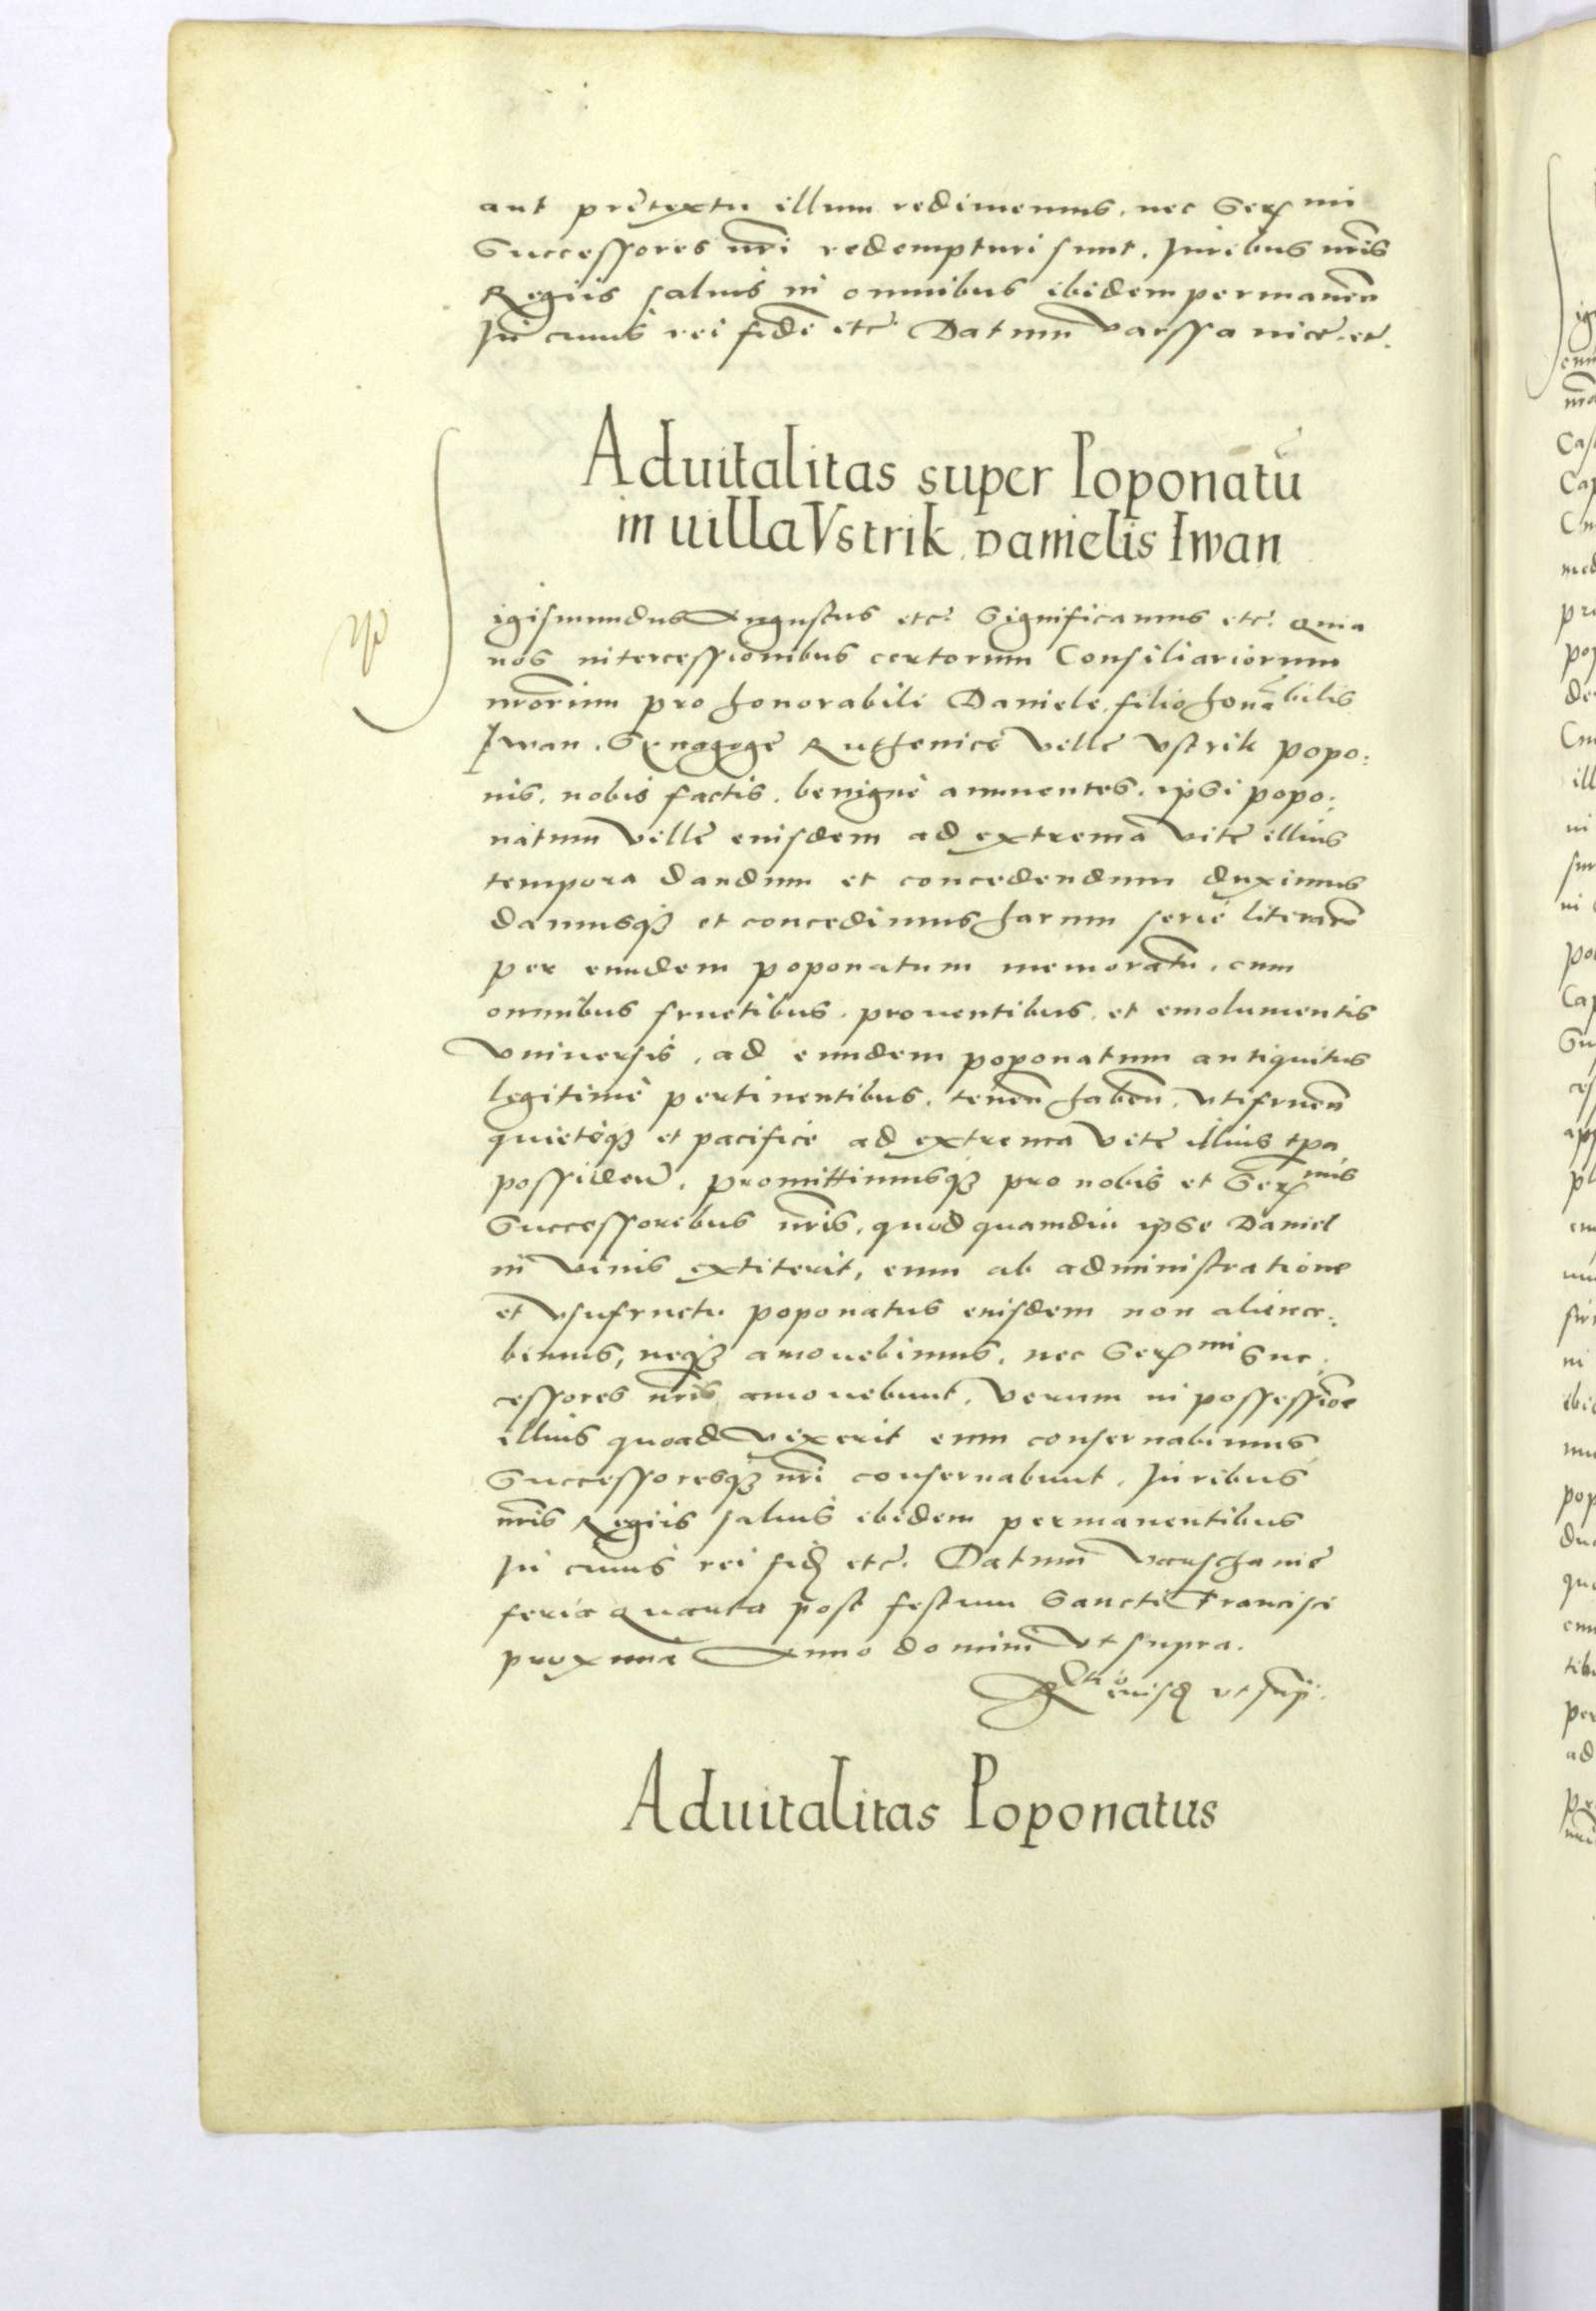 aut prętextu illum redimemus, nec Serᵐⁱ
Successores nr̄i redempturi sunt. Iuribus nr̄is
Regiis saluis in omnibus ibidem permanen̄
In cuius rei fidē etc̄ Datum Varssauię etc̄.
Aduitalitas super Poponatū
in uilla Vstrik Danielis Iwan
Sigismundus Augustus etc̄ Significamus etc̄. Quia
nos intercessionibus certorum Consiliariorum
nr̄orum pro honorabili Daniele, filio honābilis
Iwan, Synagogę Ruthenicę Villę Vstrik popo:
nis, nobis factis, benignè annuentes, ipsi popo:
natum Villę eiusdem ad extrema vitę illius
tempora dandum et concedendum duximus
damusq; et concedimus harum seriè literarū
per eundem poponatum memoratū, cum
omnibus fructibus, prouentibus, et emolumentis
Vniuersis, ad eundem poponatum antiquitus
legitimè pertinentibus, tenen̄ haben̄, vtifruen̄
quietèq; et pacificè ad extrema vitę illius tp̄a
possiden̄, promittimusq; pro nobis et Serᵐⁱˢ
Successoribus nr̄is, quod quamdiu ipse Daniel
in viuis extiterit, eum ab administratione
et Vsufructu poponatus eiusdem non aliena:
bimus, neq; amouebimus, nec Serᵐⁱ Suc:
cessores nr̄i amouebunt, Verum in possessiōe
illius quoad Vixerit eum conseruabimus
Successoresq; nr̄i conseruabunt, Iuribus
nr̄is Regiis saluis ibidem permanentibus
In cuius rei fid etc̄. Datum Varschauię
feria Quarta post festum Sancti Francisci
proxima Anno domini Vt supra.
Rtio eiusd vt supr̄.
Aduitalitas Poponatus